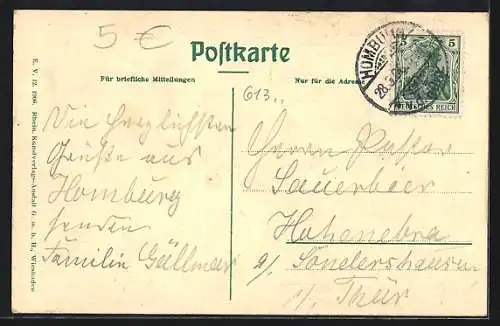 5 €
Postkarte
Für briefliche Mitteilungen
Nur für die Adresse
613
HOMBURG
28.5.
5 5
DEUTSCHES REICH
E. V. 12. 1906. Rhein. Kunstverlags-Anstalt G. m. b. H., Wiesbaden
Die herzlichsten
Grüße aus
Homburg
senden
Familie Gällmer
Herrn Pastor
Sauerbier
Hohenebra
b/ Sondershausen
i/ Thür